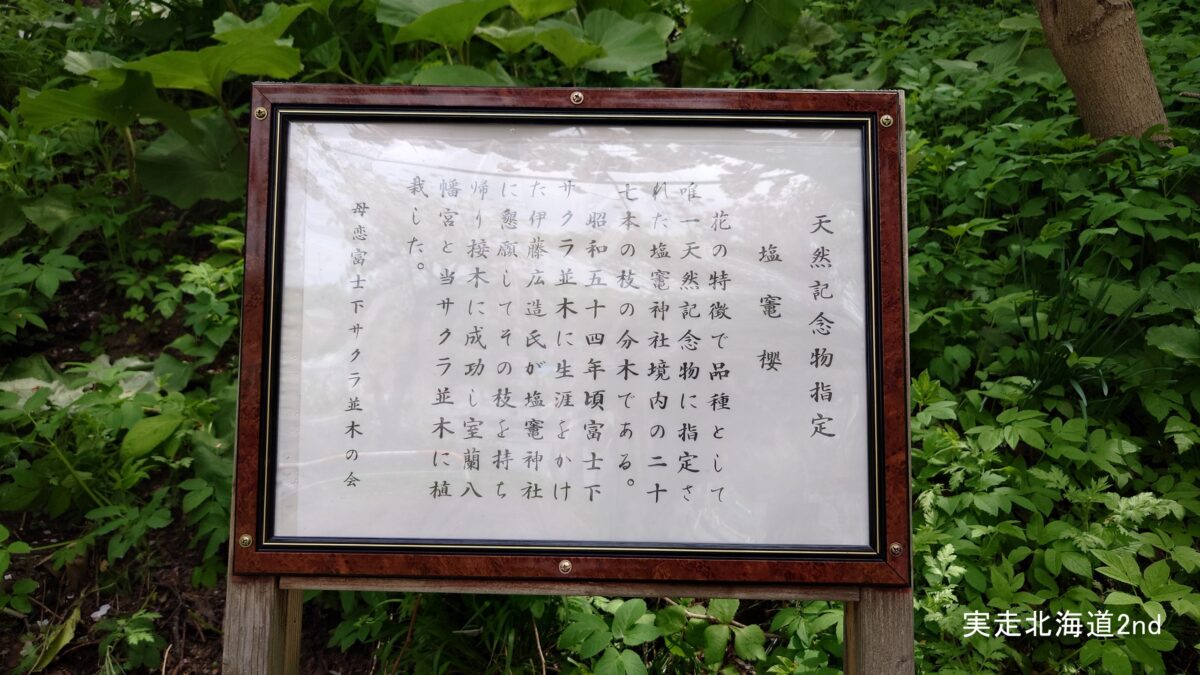 天然記念物指定
塩竈櫻
花の特徴で品種として
唯一天然記念物に指定さ
れた塩竈神社境内の二十
七本の枝の分木である。
昭和五十四年頃富士下
サクラ並木に生涯をかけ
た伊藤広造氏が塩竈神社
に懇願してその枝を持ち
帰り接木に成功し室蘭八
幡宮と当サクラ並木に植
栽した。
母恋富士下サクラ並木の会
実走北海道2nd